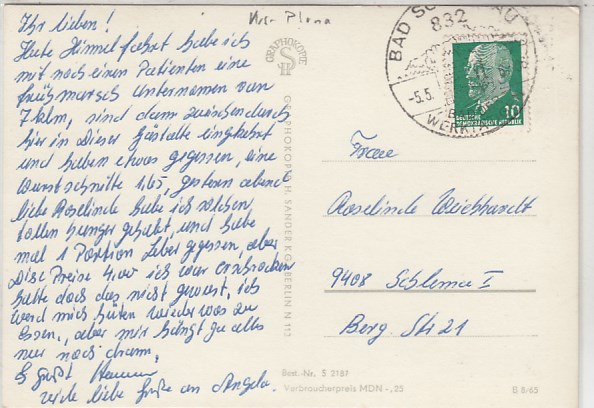 Kr. Pirna
Ihr lieben!
Heute Himmelfahrt habe ich
mit noch einen Patienten eine
frühmarsch Unternomen von
7 klm, sind dann zwischendurch
hier in dieser Gaststätte eingekehrt
und haben etwas gegessen, eine
Wurstschnitte 1,65, gestern abend
liebe Roselinde habe ich solchen
tollen hunger gehabt und habe
mal 1 Portion Leber gegessen, aber
Diese Preise ich war erschrocken
hätte doch das nicht gewust, ich
werd mich hüten wieder was zu
Essen, aber mir hängt ja alles
nur noch
Es Grüßt
viele liebe Grüße an Angela.
GRAPHOKOPIE
H. SANDER KG BERLIN N 113
BAD SCHANDAU
832
-5.5.
DEUTSCHE
DEMOKRATISCHE REPUBLIK
10
Frau
Roselinde
9408 Schlema I
Berg. Str 21
Best.-Nr. S 2187
Verbraucherpreis MDN -,25
B 8/65